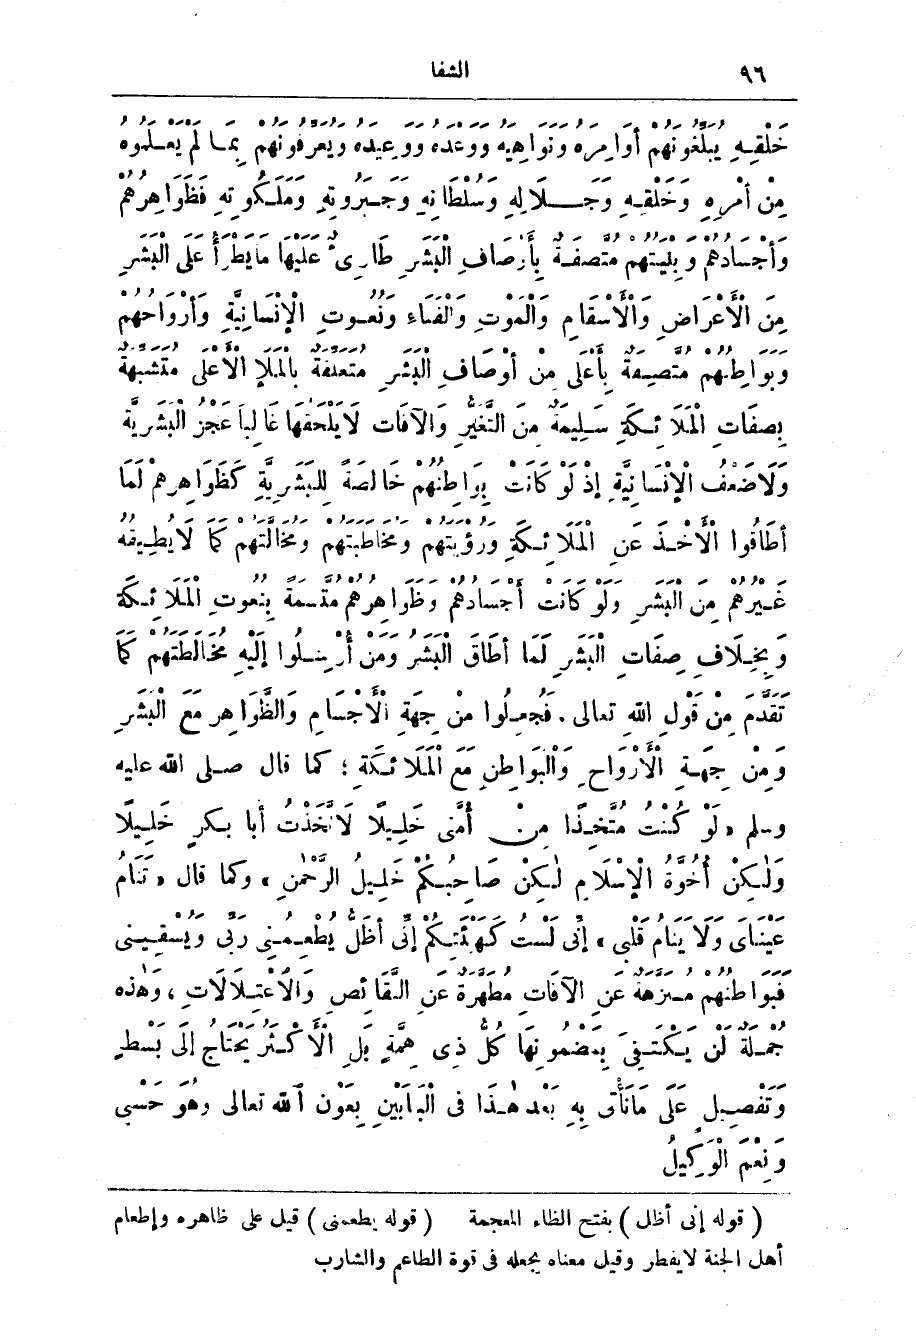 ٩٦ الشفا
خَلْقِهِ يُبَلِّغُونَهُمْ أَوَامِرَهُ وَنَوَاهِيَهُ وَوَعْدَهُ وَوَعِيدَهُ وَيُعَرِّفُونَهُمْ بِمَا لَمْ يَعْلَمُوهُ
مِنْ أَمْرِهِ وَخَلْقِهِ وَجَلَالِهِ وَسُلْطَانِهِ وَجَبَرُوتِهِ وَمَلَكُوتِهِ فَظَوَاهِرُهُمْ
وَأَجْسَادُهُمْ وَبِنْيَتُهُمْ مُتَّصِفَةٌ بِأَوْصَافِ الْبَشَرِ طَارِئٌ عَلَيْهَا مَا يَطْرَأُ عَلَى الْبَشَرِ
مِنَ الْأَعْرَاضِ وَالْأَسْقَامِ وَالْمَوْتِ وَالْفَنَاءِ وَنُعُوتِ الْإِنْسَانِيَّةِ وَأَرْوَاحُهُمْ
وَبَوَاطِنُهُمْ مُتَّصِفَةٌ بِأَعْلَى مِنْ أَوْصَافِ الْبَشَرِ مُتَعَلِّقَةٌ بِالْمَلَإِ الْأَعْلَى مُتَشَبِّهَةٌ
بِصِفَاتِ الْمَلَائِكَةِ سَلِيمَةٌ مِنَ التَّغَيُّرِ وَالْآفَاتِ لَا يَلْحَقُهَا غَالِباً عَجْزُ الْبَشَرِيَّةِ
وَلَا ضَعْفُ الْإِنْسَانِيَّةِ إِذْ لَوْ كَانَتْ بَوَاطِنُهُمْ خَالِصَةً لِلْبَشَرِيَّةِ كَظَوَاهِرِهِمْ لَمَا
أَطَاقُوا الْأَخْذَ عَنِ الْمَلَائِكَةِ وَرُؤْيَتَهُمْ وَمُخَاطَبَتَهُمْ وَمُخَالَّتَهُمْ كَمَا لَا يُطِيقُهُ
غَيْرُهُمْ مِنَ الْبَشَرِ وَلَوْ كَانَتْ أَجْسَادُهُمْ وَظَوَاهِرُهُمْ مُتَّسِمَةً بِنُعُوتِ الْمَلَائِكَةِ
وَبِخِلَافِ صِفَاتِ الْبَشَرِ لَمَا أَطَاقَ الْبَشَرُ وَمَنْ أُرْسِلُوا إِلَيْهِ مُخَالَطَتَهُمْ كَمَا
تَقَدَّمَ مِنْ قَوْلِ اللهِ تعالى . فَجُعِلُوا مِنْ جِهَةِ الْأَجْسَامِ وَالظَّوَاهِرِ مَعَ الْبَشَرِ
وَمِنْ جِهَةِ الْأَرْوَاحِ وَالْبَوَاطِنِ مَعَ الْمَلَائِكَةِ ؛ كما قال صلى الله عليه
وسلم « لَوْ كُنْتُ مُتَّخِذًا مِنْ أُمَّتِي خَلِيلًا لَاتَّخَذْتُ أَبَا بَكرٍ خَلِيلًا
وَلٰكِنْ أُخُوَّةُ الْإِسْلَامِ لٰكِنْ صَاحِبُكُمْ خَلِيلُ الرَّحْمٰنِ » وكما قال « تَنَامُ
عَيْنَاىَ وَلَا يَنَامُ قَلْبِى » إِنِّى لَسْتُ كَهَيْئَتِكُمْ إِنِّى أَظَلُّ يُطْعِمُنِى رَبِّى وَيَسْقِينِى
فَبَوَاطِنُهُمْ مُنَزَّهَةٌ عَنِ الْآفَاتِ مُطَهَّرَةٌ عَنِ النَّقَائِصِ وَالْاعْتِلَالَاتِ ، وَهٰذِهِ
جُمْلَةٌ لَنْ يَكْتَفِىَ بِمَضْمُونِهَا كُلُّ ذِى هِمَّةٍ بَلِ الْأَكْثَرُ يَحْتَاجُ إِلَى بَسْطٍ
وَتَفْصِيلٍ عَلَى مَا نَأْتِى بِهِ بَعْدَ هٰذَا فِى الْبَابَيْنِ بِعَوْنِ اللهِ تعالى وَهُوَ حَسْبِى
وَنِعْمَ الْوَكِيلُ
( قوله إنى أظل ) بفتح الظاء المعجمة ( قوله يطعمنى ) قيل على ظاهره وإطعام
أهل الجنة لايفطر وقيل معناه يجعله فى قوة الطاعم والشارب